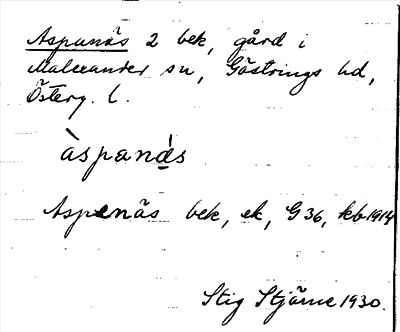 Aspanäs 2 bek, gård i
Malexander sn, Göstrings hd,
Österg. l.
àspaná̱s
Aspenäs bek, ek, G 36, kb 1914
Stig Stjärne 1930.